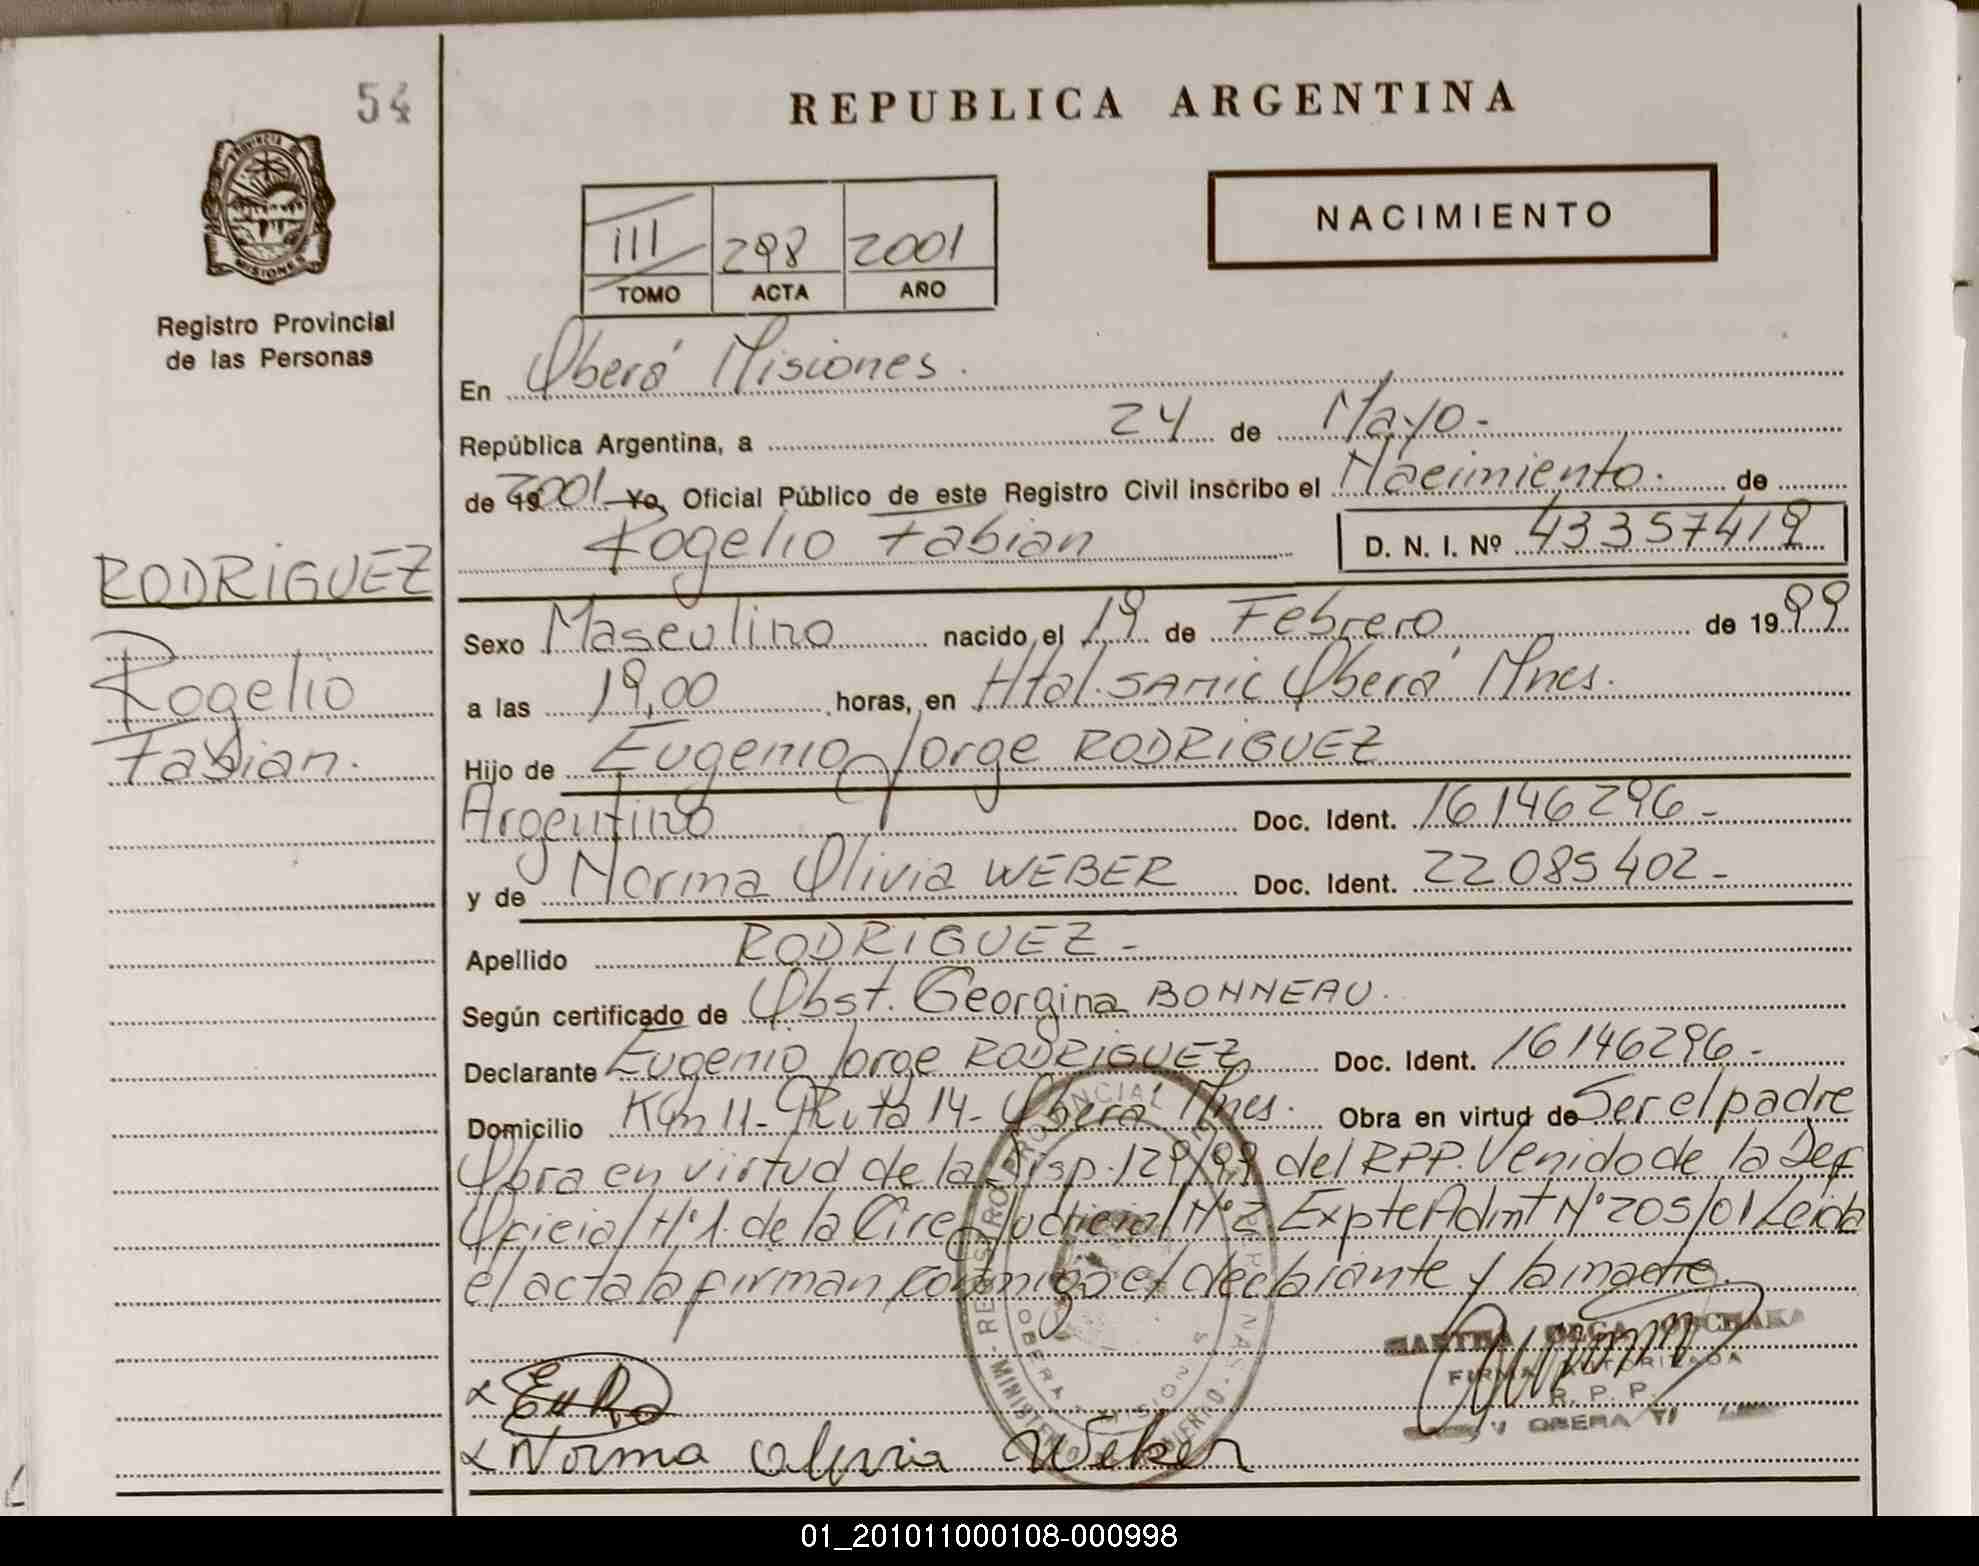 54
REPUBLICA ARGENTINA
PROVINCIA D
MISIONES
Registro Provincial
de las Personas
NACIMIENTO
III 298 2001
TOMO ACTA AÑO
En Oberá Misiones.
República Argentina, a 24 de Mayo-
de 19 2001 Yo, Oficial Público de este Registro Civil inscribo el Nacimiento. de
Rogelio Fabian D. N. I. Nº 43357419
RODRIGUEZ
Rogelio
Fabian.
Sexo Masculino nacido el 19 de Febrero de 1999
a las 19,00 horas, en Htal. SAMIC Oberá Mnes.
Hijo de Eugenio Jorge RODRIGUEZ
Argentino Doc. Ident. 16146296-
y de Norma Olivia WEBER Doc. Ident. 22085402-
Apellido RODRIGUEZ-
Según certificado de Obst. Georgina BONNEAU.
Declarante Eugenio Jorge RODRIGUEZ Doc. Ident. 16146296-
Domicilio Km 11- Ruta 14- Oberá Mnes. Obra en virtud de Ser el padre
Obra en virtud de la Disp. 129/99 del RPP. Venido de la Def
Oficial Nº 1. de la Circ Judicial Nº 2 Expte Admt Nº 205/01 Leida
el acta la firman conmigo el declarante y la madre.
FIRMA AUTORIZADA
R. P. P.
OBERA
Norma Olivia Weber
01_201011000108-000998